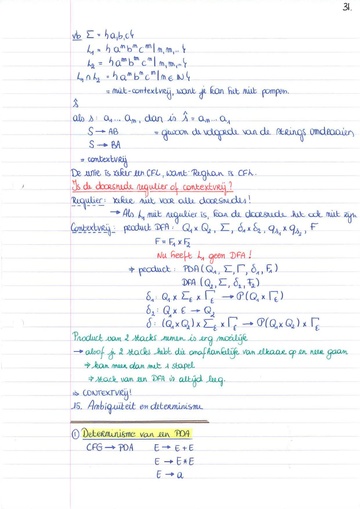 31.
vb Σ = {a,b,c}
L₁ = {aⁿbⁿcᵐ | n,m,..}
L₂ = {aᵐbⁿcⁿ | n,m,..}
L₁ ∩ L₂ = {aⁿbⁿcⁿ | n ∈ N}
= niet-contextvrij, want je kan het niet pompen.
ŝ
als s: a₁... aₙ, dan is ŝ = aₙ... a₁
S → AB = gewoon de volgorde van de strings omdraaien
S → BA
= contextvrij
De unie is zeker een CFL, want: Reghan is CFL.
Is de doorsnede regulier of contextvrij?
Regulier: zeker niet voor alle doorsnedes!
→ Als L₁ niet regulier is, kan de doorsnede het ook niet zijn
Contextvrij: product DFA: Q₁ x Q₂, Σ, δ₁ x δ₂, qs₁ x qs₂, F
F = F₁ x F₂
Nu heeft L₁ geen DFA!
product: PDA (Q₁, Σ, Γ, δ₁, F₁)
DFA (Q₂, Σ, δ₂, F₂)
δ₁: Q₁ x Σε x Γε → P(Q₁ x Γε)
δ₂: Q₂ x Σ → Q₂
δ: (Q₁ x Q₂) x Σε x Γε → P(Q₁ x Q₂) x Γε
Product van 2 stacks nemen is erg moeilijk
→ alsof je 2 stacks hebt die onafhankelijk van elkaar op en neer gaan
→ kan meer dan met 1 stapel
→ stack van een DFA is altijd leeg.
⇒ CONTEXTVRIJ!
15. Ambiguïteit en determinisme
① Determinisme van een PDA
CFG → PDA E → E + E
E → E * E
E → a